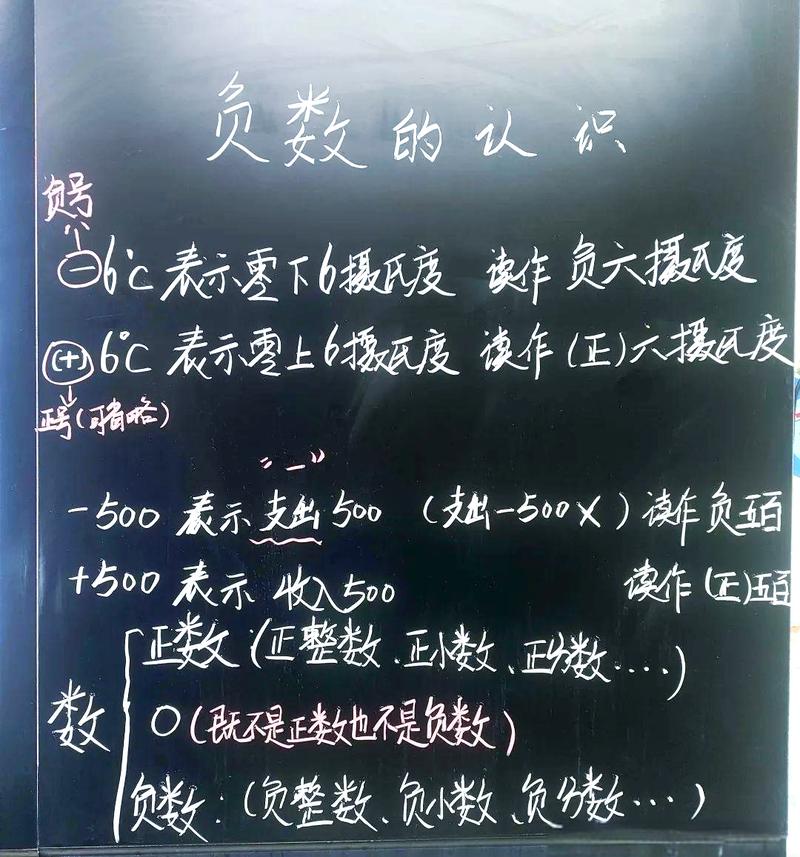 负数的认识
负号
-6℃ 表示零下6摄氏度 读作 负六摄氏度
(+)6℃ 表示零上6摄氏度 读作(正)六摄氏度
正号(可省略)
“-”
-500 表示支出500 (支出-500×) 读作负五百
+500 表示收入500 读作(正)五百
正数(正整数、正小数、正分数....)
数 0(既不是正数也不是负数)
负数:(负整数、负小数、负分数...)